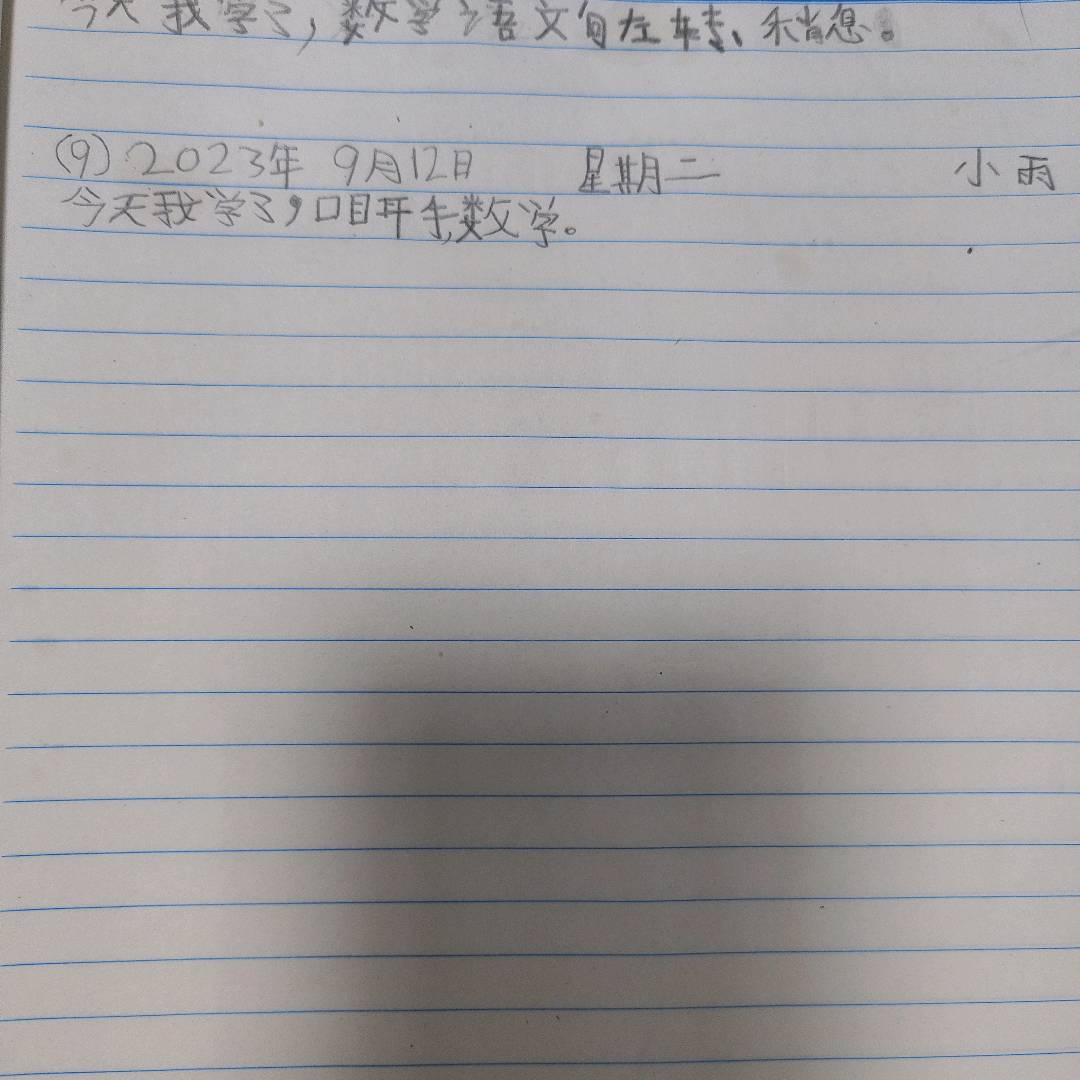 今天我学了,数学语文向左转、稍息。
(9) 2023年 9月12日 星期二 小雨
今天我学了,口目耳手,数学。